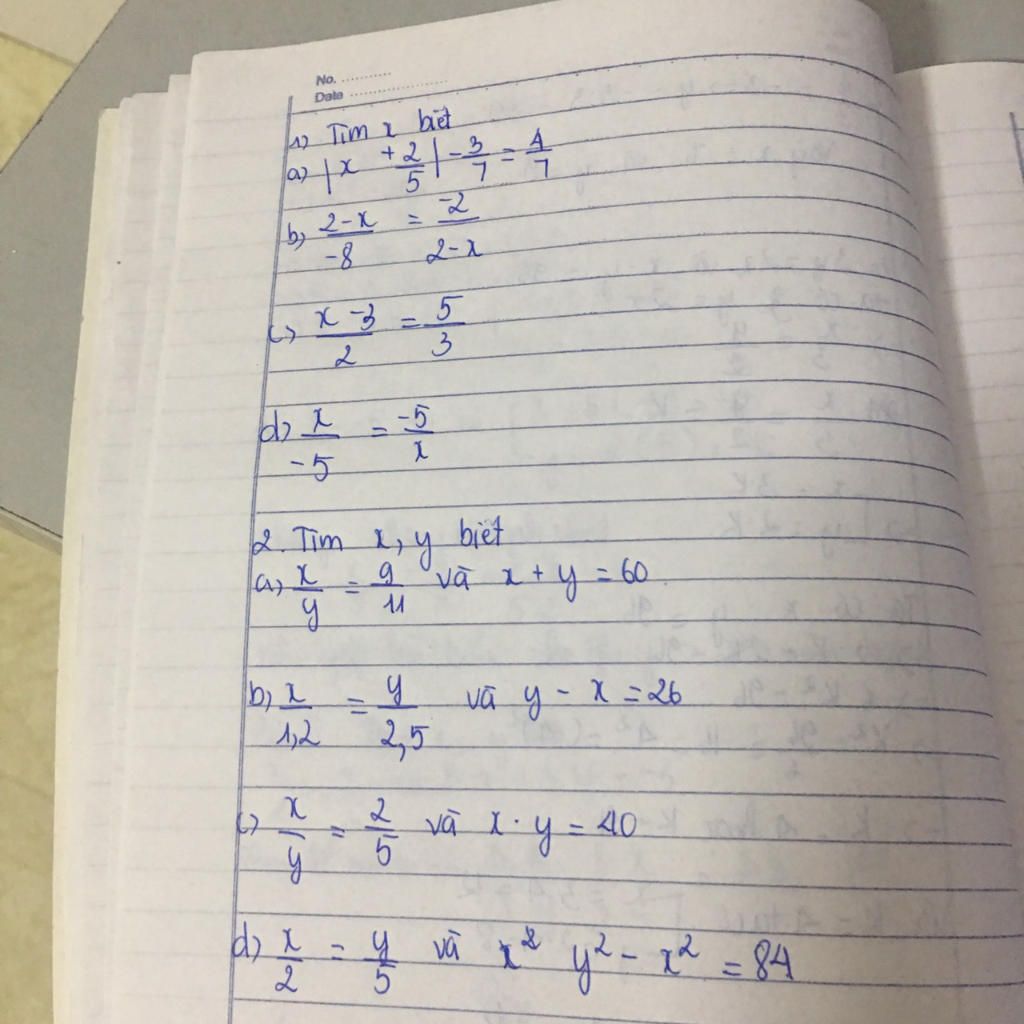 No. ..........
Date ....................
1) Tìm x biết
a) |x + 2/5| - 3/7 = 4/7
b) 2-x/-8 = -2/2-x
c) x-3/2 = 5/3
d) x/-5 = -5/x
2. Tìm x, y biết
a) x/y = 9/11 và x + y = 60
b) x/1,2 = y/2,5 và y - x = 26
c) x/y = 2/5 và x · y = 40
d) x/2 = y/5 và x² y² - x² = 84